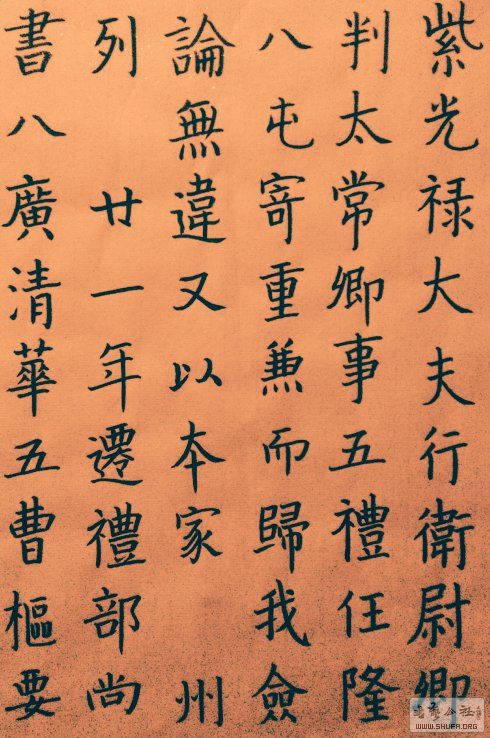 紫光禄大夫行衛尉卿
判太常卿事五禮任隆
八屯寄重兼而歸我僉
論無違又以本家 州
列 廿一年遷禮部尚
書八廣清華五曹樞要
WWW.SHUFA.ORG